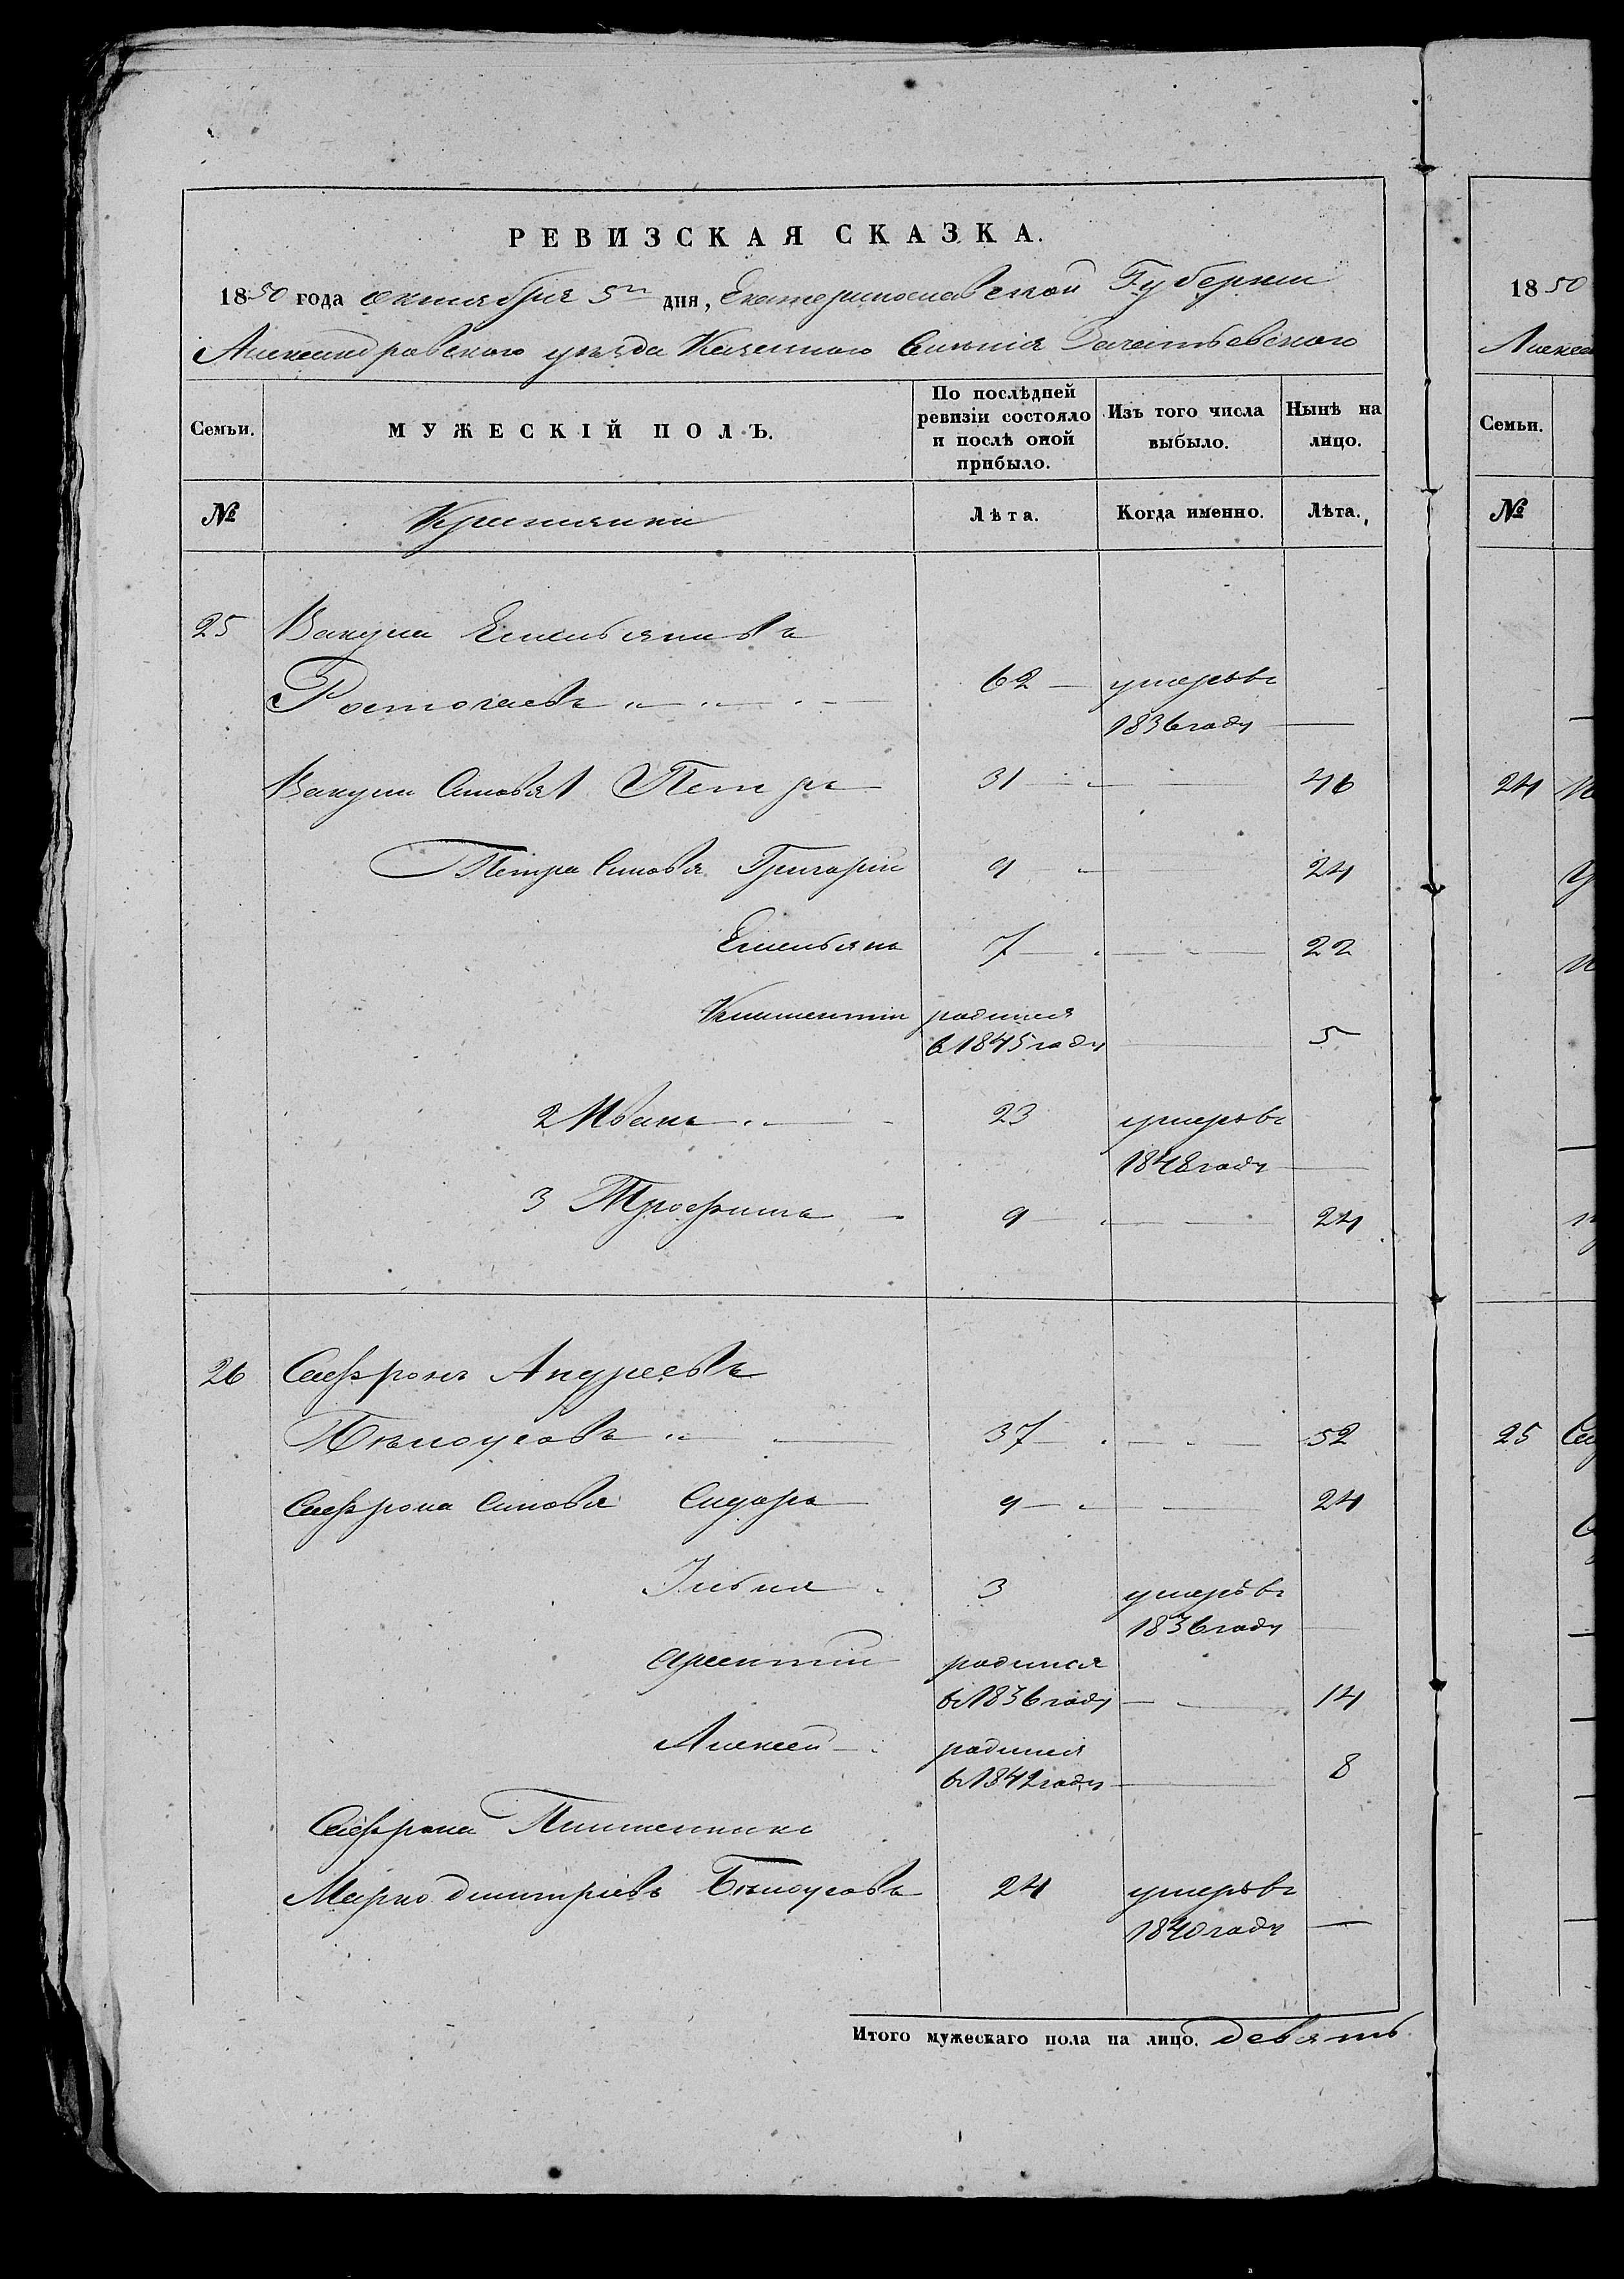 РЕВИЗСКАЯ СКАЗКА.
1850 года октября 5го дня, Екатеринославской Губернии
Александровского уезда Казенного Селенія Зачатьевского
Семьи. МУЖЕСКІЙ ПОЛЪ. По послѣдней ревизіи состояло и послѣ оной прибыло. Изъ того числа выбыло. Нынѣ на лицо.
№ Крестьяни Лѣта. Когда именно. Лѣта.
25 Вакула Емельяновъ
62 умеръ въ
1836 году
Вакули Синовя 1 Петръ 31 46
Петра Синовя Григорий 9 24
Емельянъ 7 22
Климентий родился
в 1845 году 5
2 Иванъ 23 умеръ въ
1848 году
3 Трофимъ 9 24
26 Сафронъ Андреевъ
Белоусовъ 37 52
Сафрона Синовя Сидоръ 9 24
Илья 3 умеръ въ
1836 году
Арсентий родился
въ 1836 году 14
Алексей родился
въ 1842 году 8
Сафрона Племенникъ
Марко Дмитріевъ Белоусовъ 24 умеръ въ
1840 году
Итого мужескаго пола на лицо. девять
1850
Семьи.
№
24
25